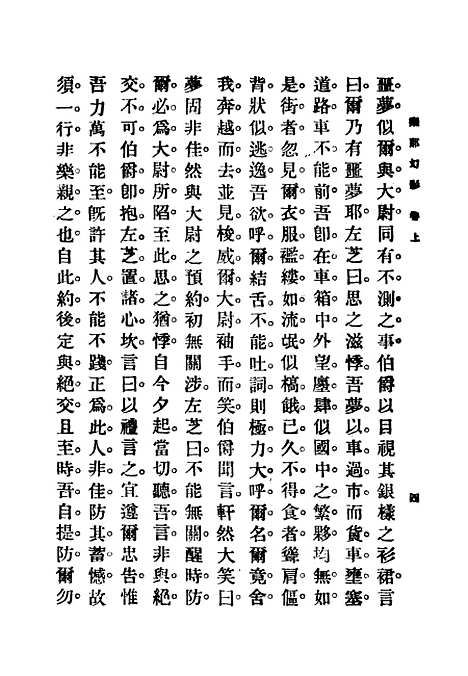 樂郡幻影 卷上
四
噩夢似爾與大尉同有不測之事伯爵以目視其銀樣之衫裙言
曰爾乃有噩夢耶左芝曰思之滋悸吾夢以車過市而貨車壅塞
道路車不能前吾卽在車箱中外望廛肆似國中之繁夥均無如
是街者忽見爾衣服襤縷如流氓似槁餓已久不得食者聳肩傴
背狀似逃逸吾欲呼爾結舌不能吐詞則極力大呼爾名爾竟舍
我奔越而去並見梭威爾大尉袖手而笑伯爵聞言軒然大笑曰
夢固非佳然與大尉之預約初無關涉左芝曰不能無關醒時防
爾必爲大尉所陷至此思之猶悸自今夕起當切聽吾言非與絕
交不可伯爵卽抱左芝置諸心坎言曰以禮言之宜遵爾忠告惟
吾力萬不能至旣許其人不能不踐正爲此人非佳防其蓄憾故
須一行非樂親之也自此約後定與絕交且至時吾自提防爾勿